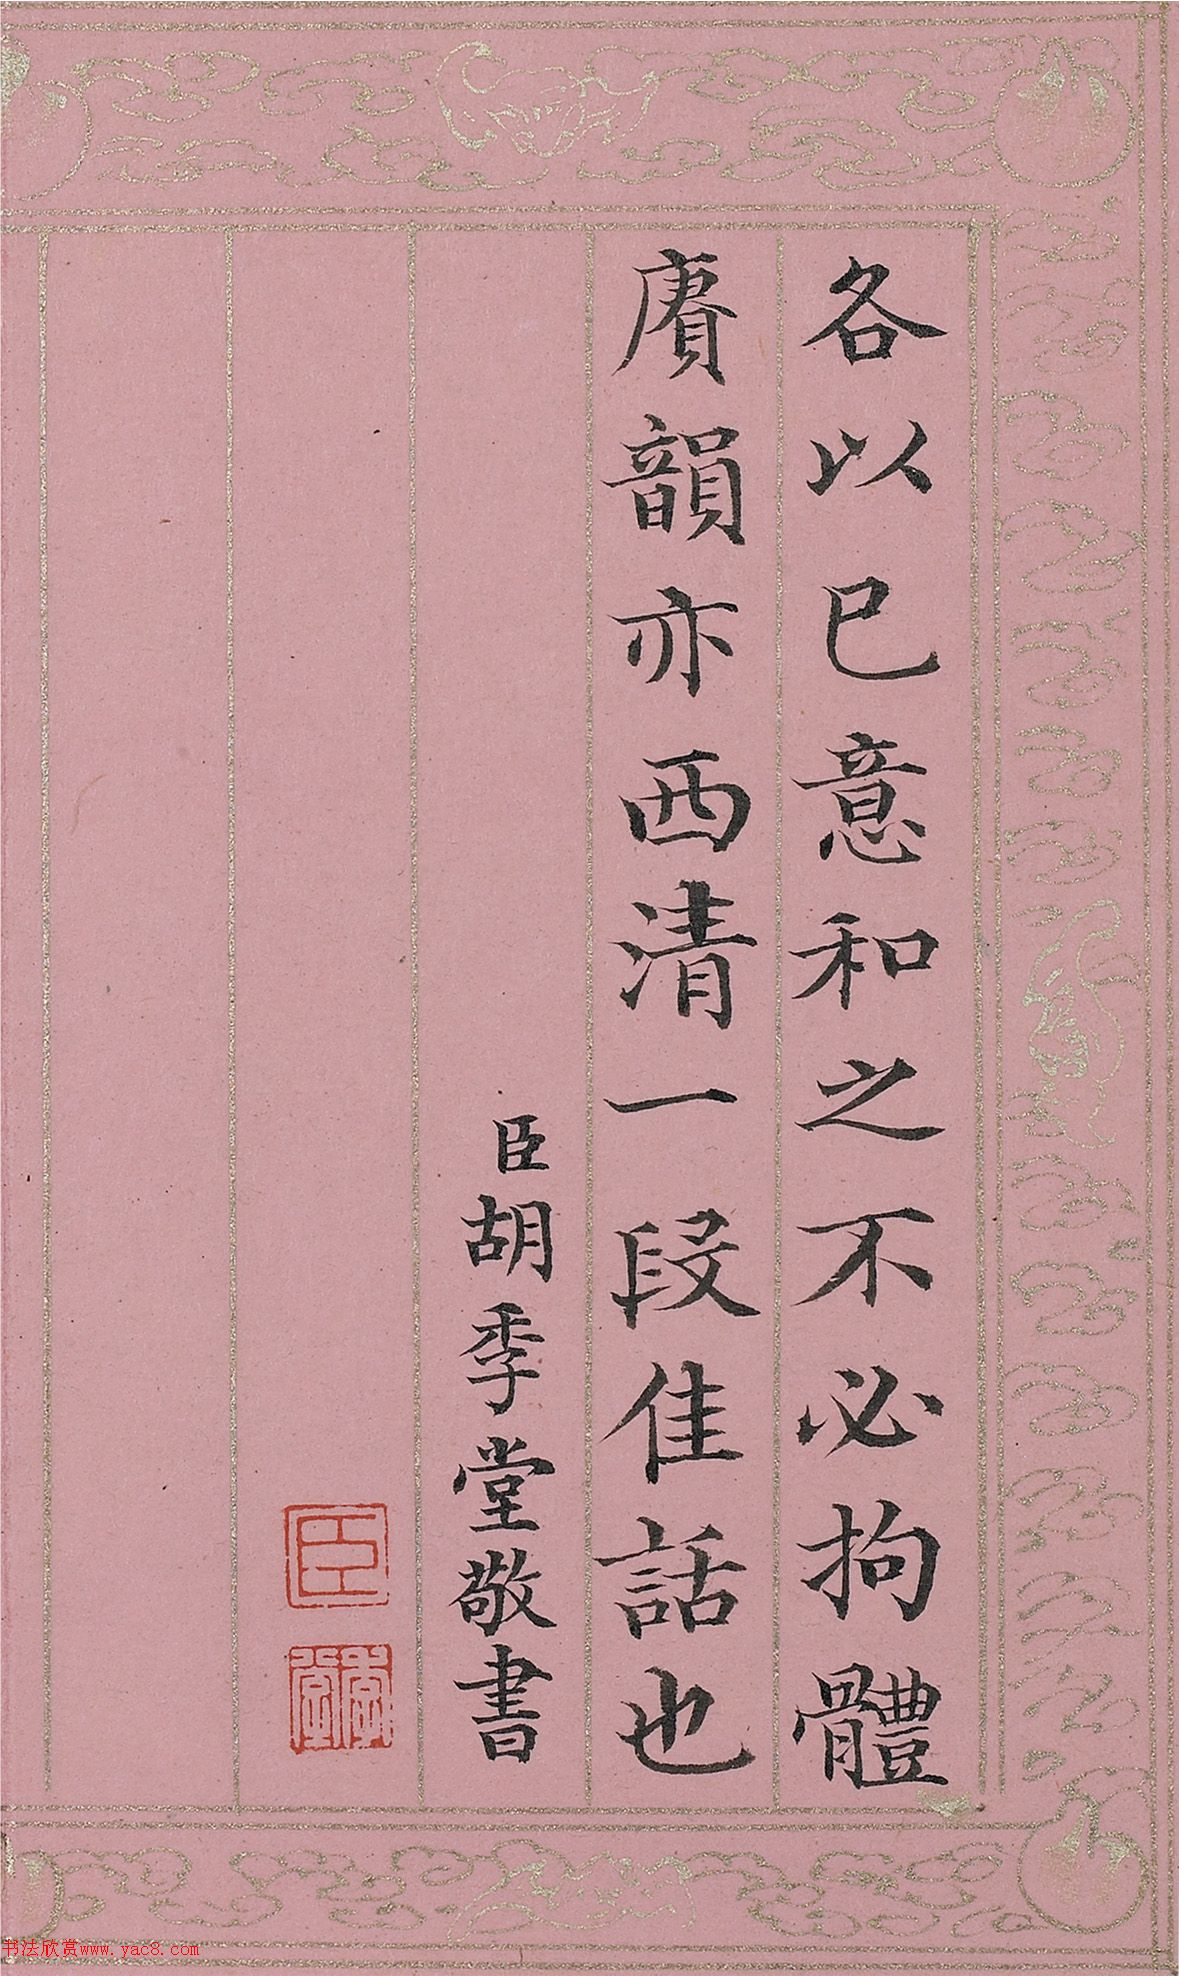 各以已意和之不必拘體
賡韻亦西清一段佳話也
臣胡季堂敬書
臣
季堂
书法欣赏www.yac8.com